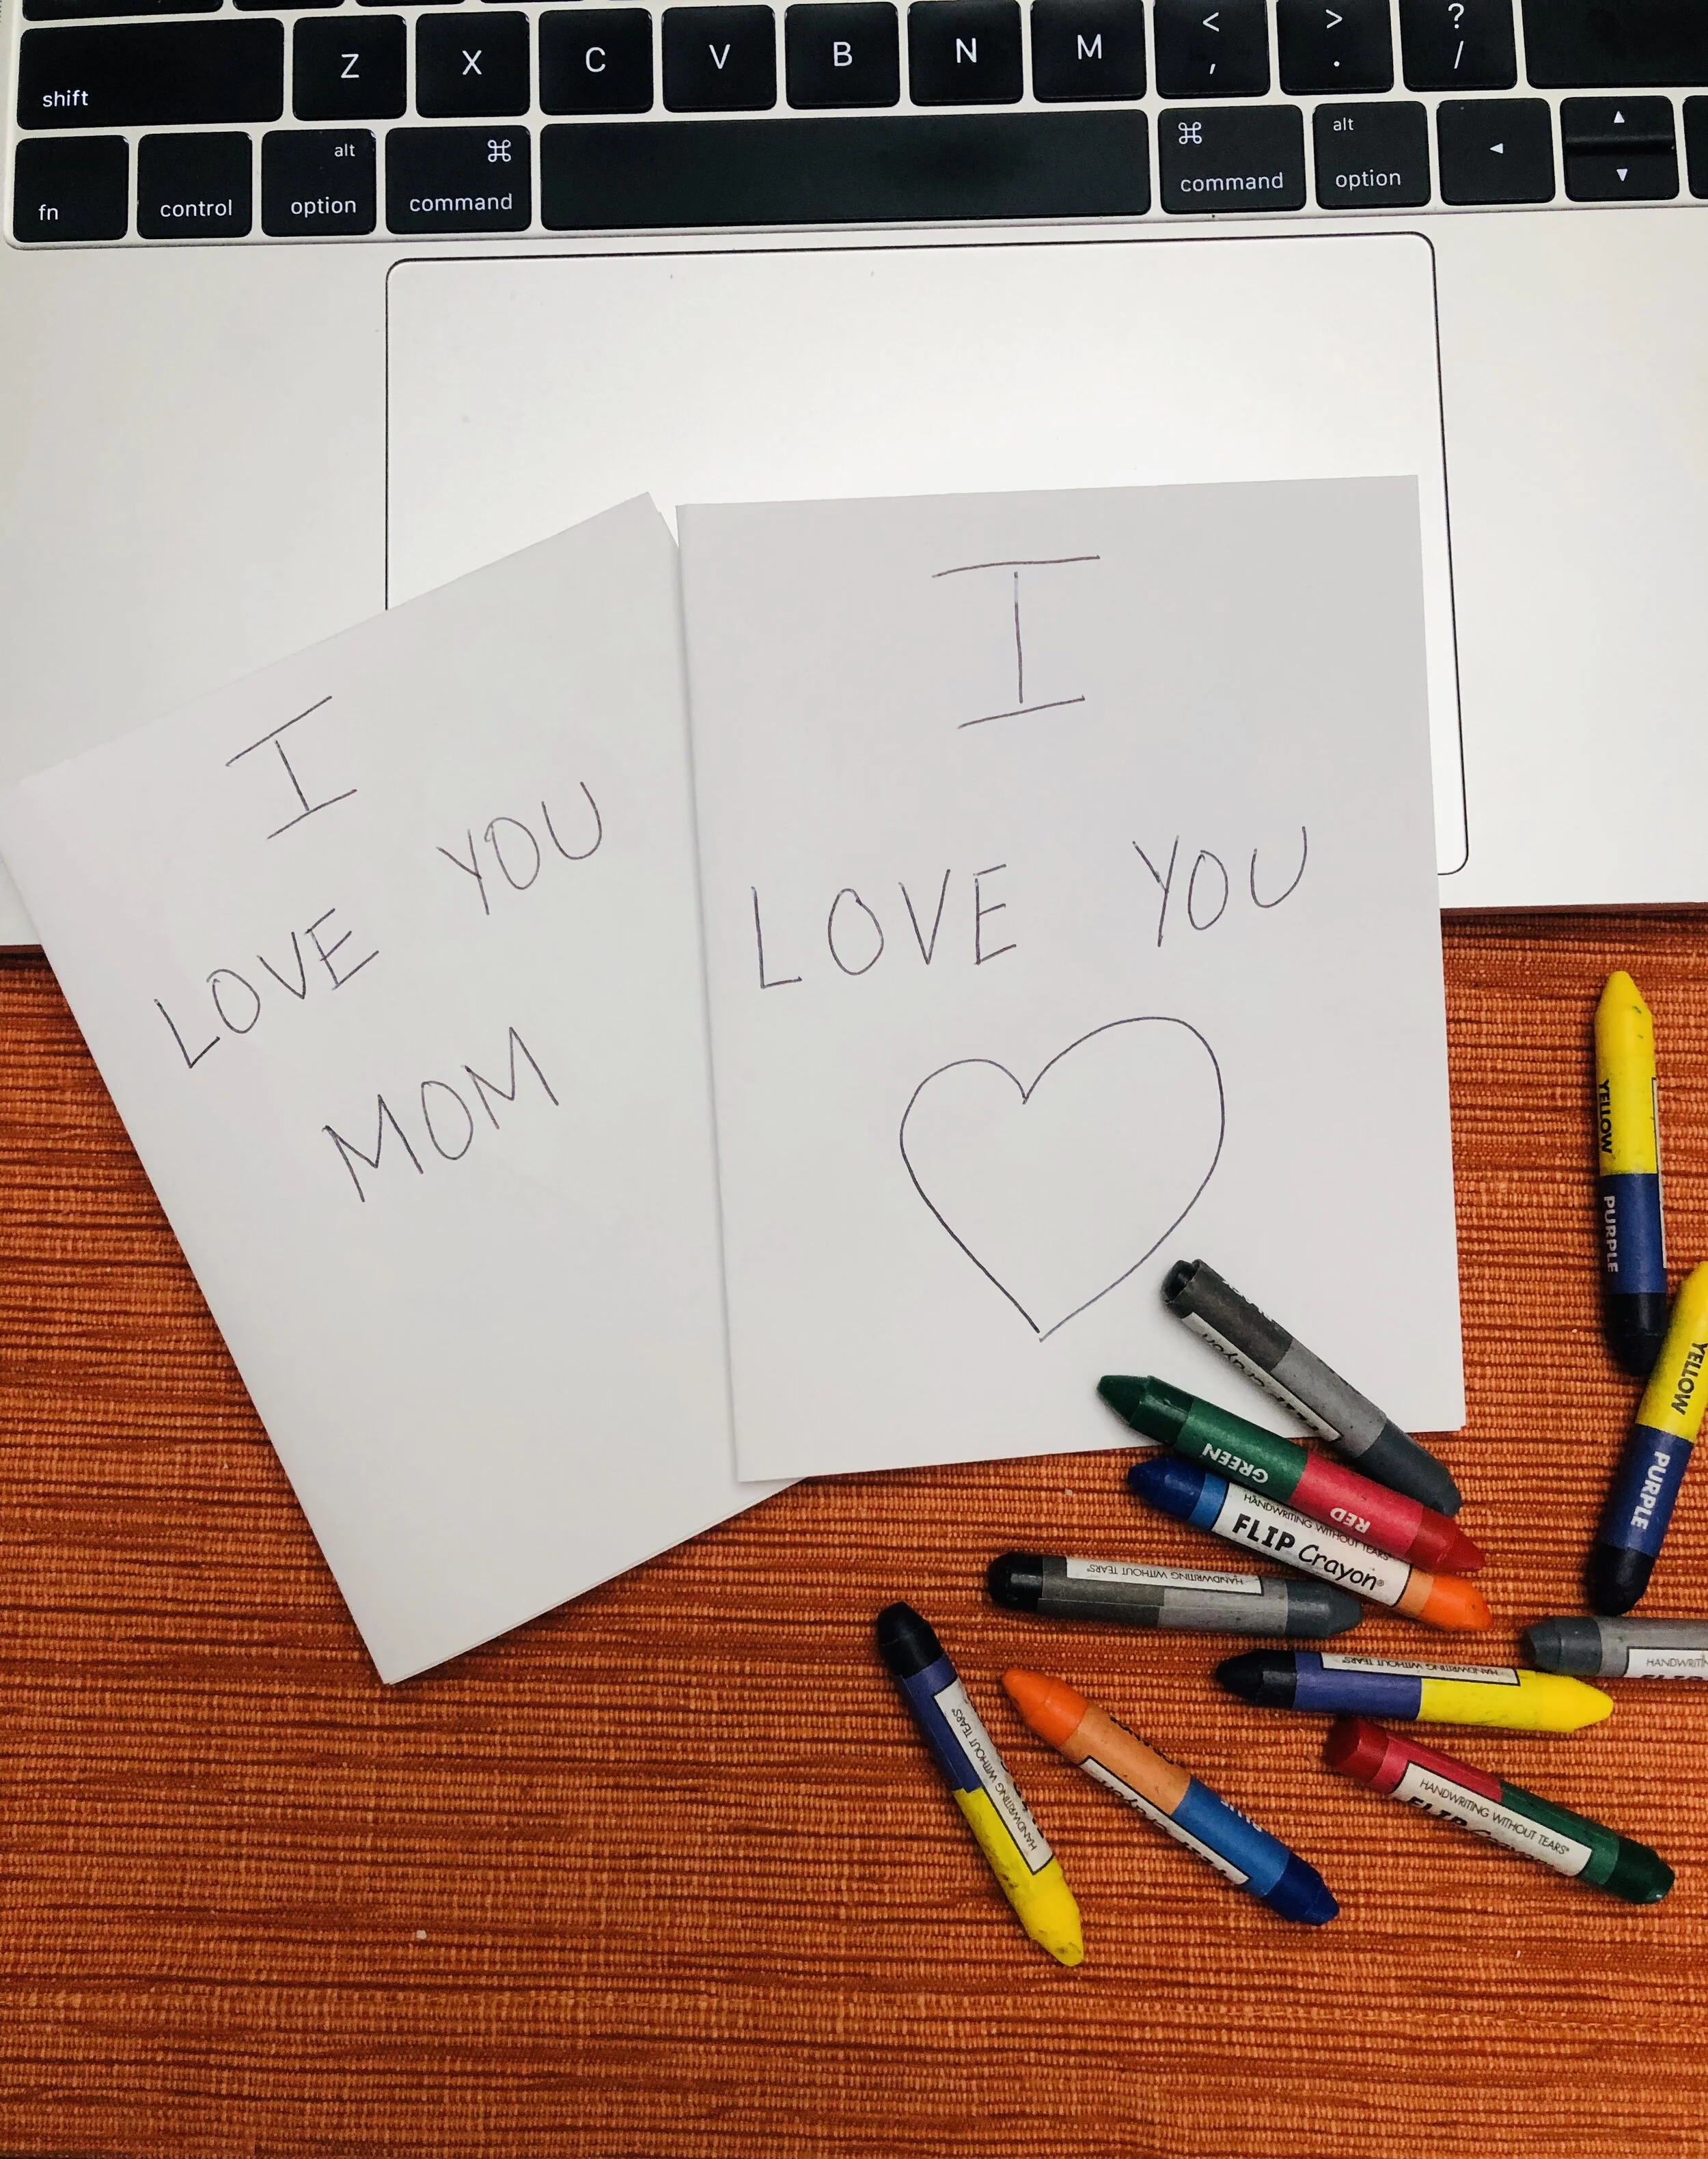 Z X C V B N M < , > . ? /
shift
fn control alt option ⌘ command ⌘ command alt option ◄ ▲ ▼
I
LOVE YOU
MOM
I
LOVE YOU
YELLOW
PURPLE
YELLOW
PURPLE
Crayon
GREEN
RED
HANDWRITING WITHOUT TEARS®
FLIP Crayon®
HANDWRITING WITHOUT TEARS®
HANDWRITING WITHOUT TEARS®
HANDWRITING WITHOUT TEARS®
HANDWRITING WITHOUT TEARS®